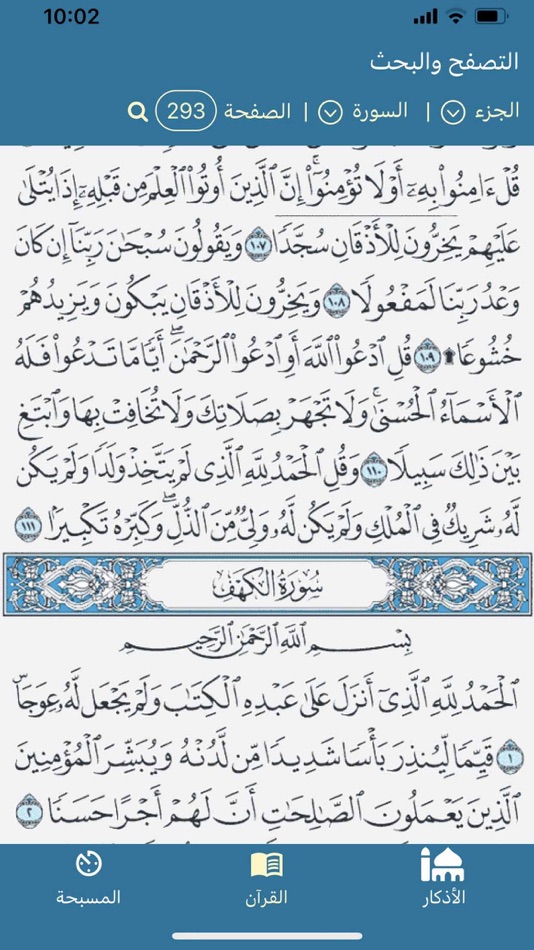 10:02
التصفح والبحث
الجزء | السورة | الصفحة 293
قُلْ ءَامِنُوا۟ بِهِۦٓ أَوْ لَا تُؤْمِنُوٓا۟ ۚ إِنَّ ٱلَّذِينَ أُوتُوا۟ ٱلْعِلْمَ مِن قَبْلِهِۦٓ إِذَا يُتْلَىٰ
عَلَيْهِمْ يَخِرُّونَ لِلْأَذْقَانِ سُجَّدًا ١٠٧ وَيَقُولُونَ سُبْحَٰنَ رَبِّنَآ إِن كَانَ
وَعْدُ رَبِّنَا لَمَفْعُولًا ١٠٨ وَيَخِرُّونَ لِلْأَذْقَانِ يَبْكُونَ وَيَزِيدُهُمْ
خُشُوعًا ۩ ١٠٩ قُلِ ٱدْعُوا۟ ٱللَّهَ أَوِ ٱدْعُوا۟ ٱلرَّحْمَٰنَ ۖ أَيًّا مَّا تَدْعُوا۟ فَلَهُ
ٱلْأَسْمَآءُ ٱلْحُسْنَىٰ ۚ وَلَا تَجْهَرْ بِصَلَاتِكَ وَلَا تُخَافِتْ بِهَا وَٱبْتَغِ
بَيْنَ ذَٰلِكَ سَبِيلًا ١١٠ وَقُلِ ٱلْحَمْدُ لِلَّهِ ٱلَّذِى لَمْ يَتَّخِذْ وَلَدًا وَلَمْ يَكُن
لَّهُۥ شَرِيكٌ فِى ٱلْمُلْكِ وَلَمْ يَكُن لَّهُۥ وَلِىٌّ مِّنَ ٱلذُّلِّ ۖ وَكَبِّرْهُ تَكْبِيرًۢا ١١١
سُورَةُ الكَهْفِ
بِسْمِ ٱللَّهِ ٱلرَّحْمَٰنِ ٱلرَّحِيمِ
ٱلْحَمْدُ لِلَّهِ ٱلَّذِىٓ أَنزَلَ عَلَىٰ عَبْدِهِ ٱلْكِتَٰبَ وَلَمْ يَجْعَل لَّهُۥ عِوَجَا ۜ
١ قَيِّمًا لِّيُنذِرَ بَأْسًا شَدِيدًا مِّن لَّدُنْهُ وَيُبَشِّرَ ٱلْمُؤْمِنِينَ
ٱلَّذِينَ يَعْمَلُونَ ٱلصَّٰلِحَٰتِ أَنَّ لَهُمْ أَجْرًا حَسَنًا ٢
الأذكار
القرآن
المسبحة